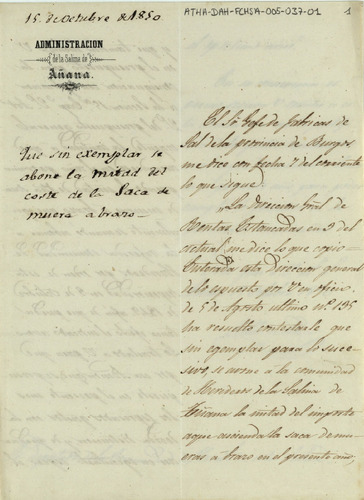 15 de Octubre de 1850
ATHA-DAH-FCHSA-005-037-01
1
ADMINISTRACION
de la Salina de
Añana.
Que sin exemplar se
abone la mitad del
coste de la Saca de
muera abrazo
El Sr. Gefe de fabricas de
Sal de la provincia de Burgos
me dice con fecha 7 del corriente
lo que sigue.
"La Direccion Gral de
Rentas Estancadas en 2 del
actual me dice lo que copio
Enterada esta direccion general
de lo espuesto por V en oficio
de 5 de Agosto ultimo nº 135
ha resuelto contestarle que
sin egemplar para lo suce-
sivo, se avone a la comunidad
de Herederos de la Salina de
Añana la mitad del importe
aque ascienda la saca de mue-
ras abrazo en el presente año,